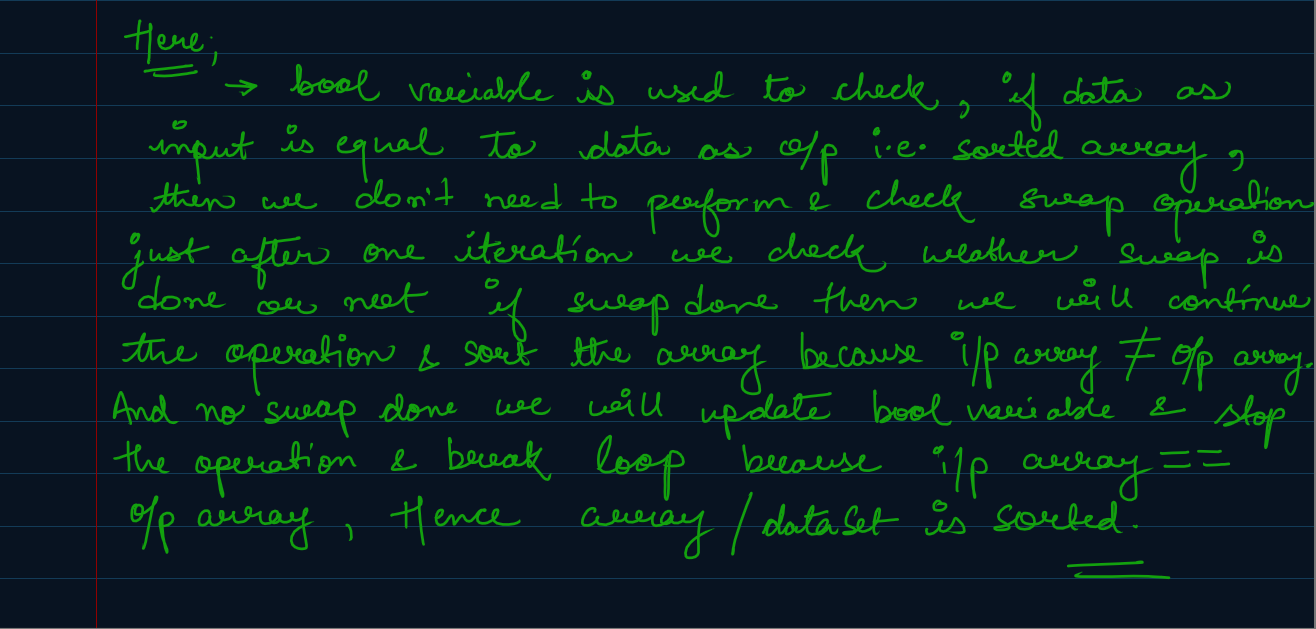 Here;
→ bool variable is used to check, if data as
input is equal to data as o/p i.e. sorted array,
then we don't need to perform & check swap operation
just after one iteration we check weather swap is
done or not if swap done then we will continue
the operation & sort the array because i/p array ≠ o/p array.
And no swap done we will update bool variable & stop
the operation & break loop because i/p array ==
o/p array, Hence array/dataset is sorted.